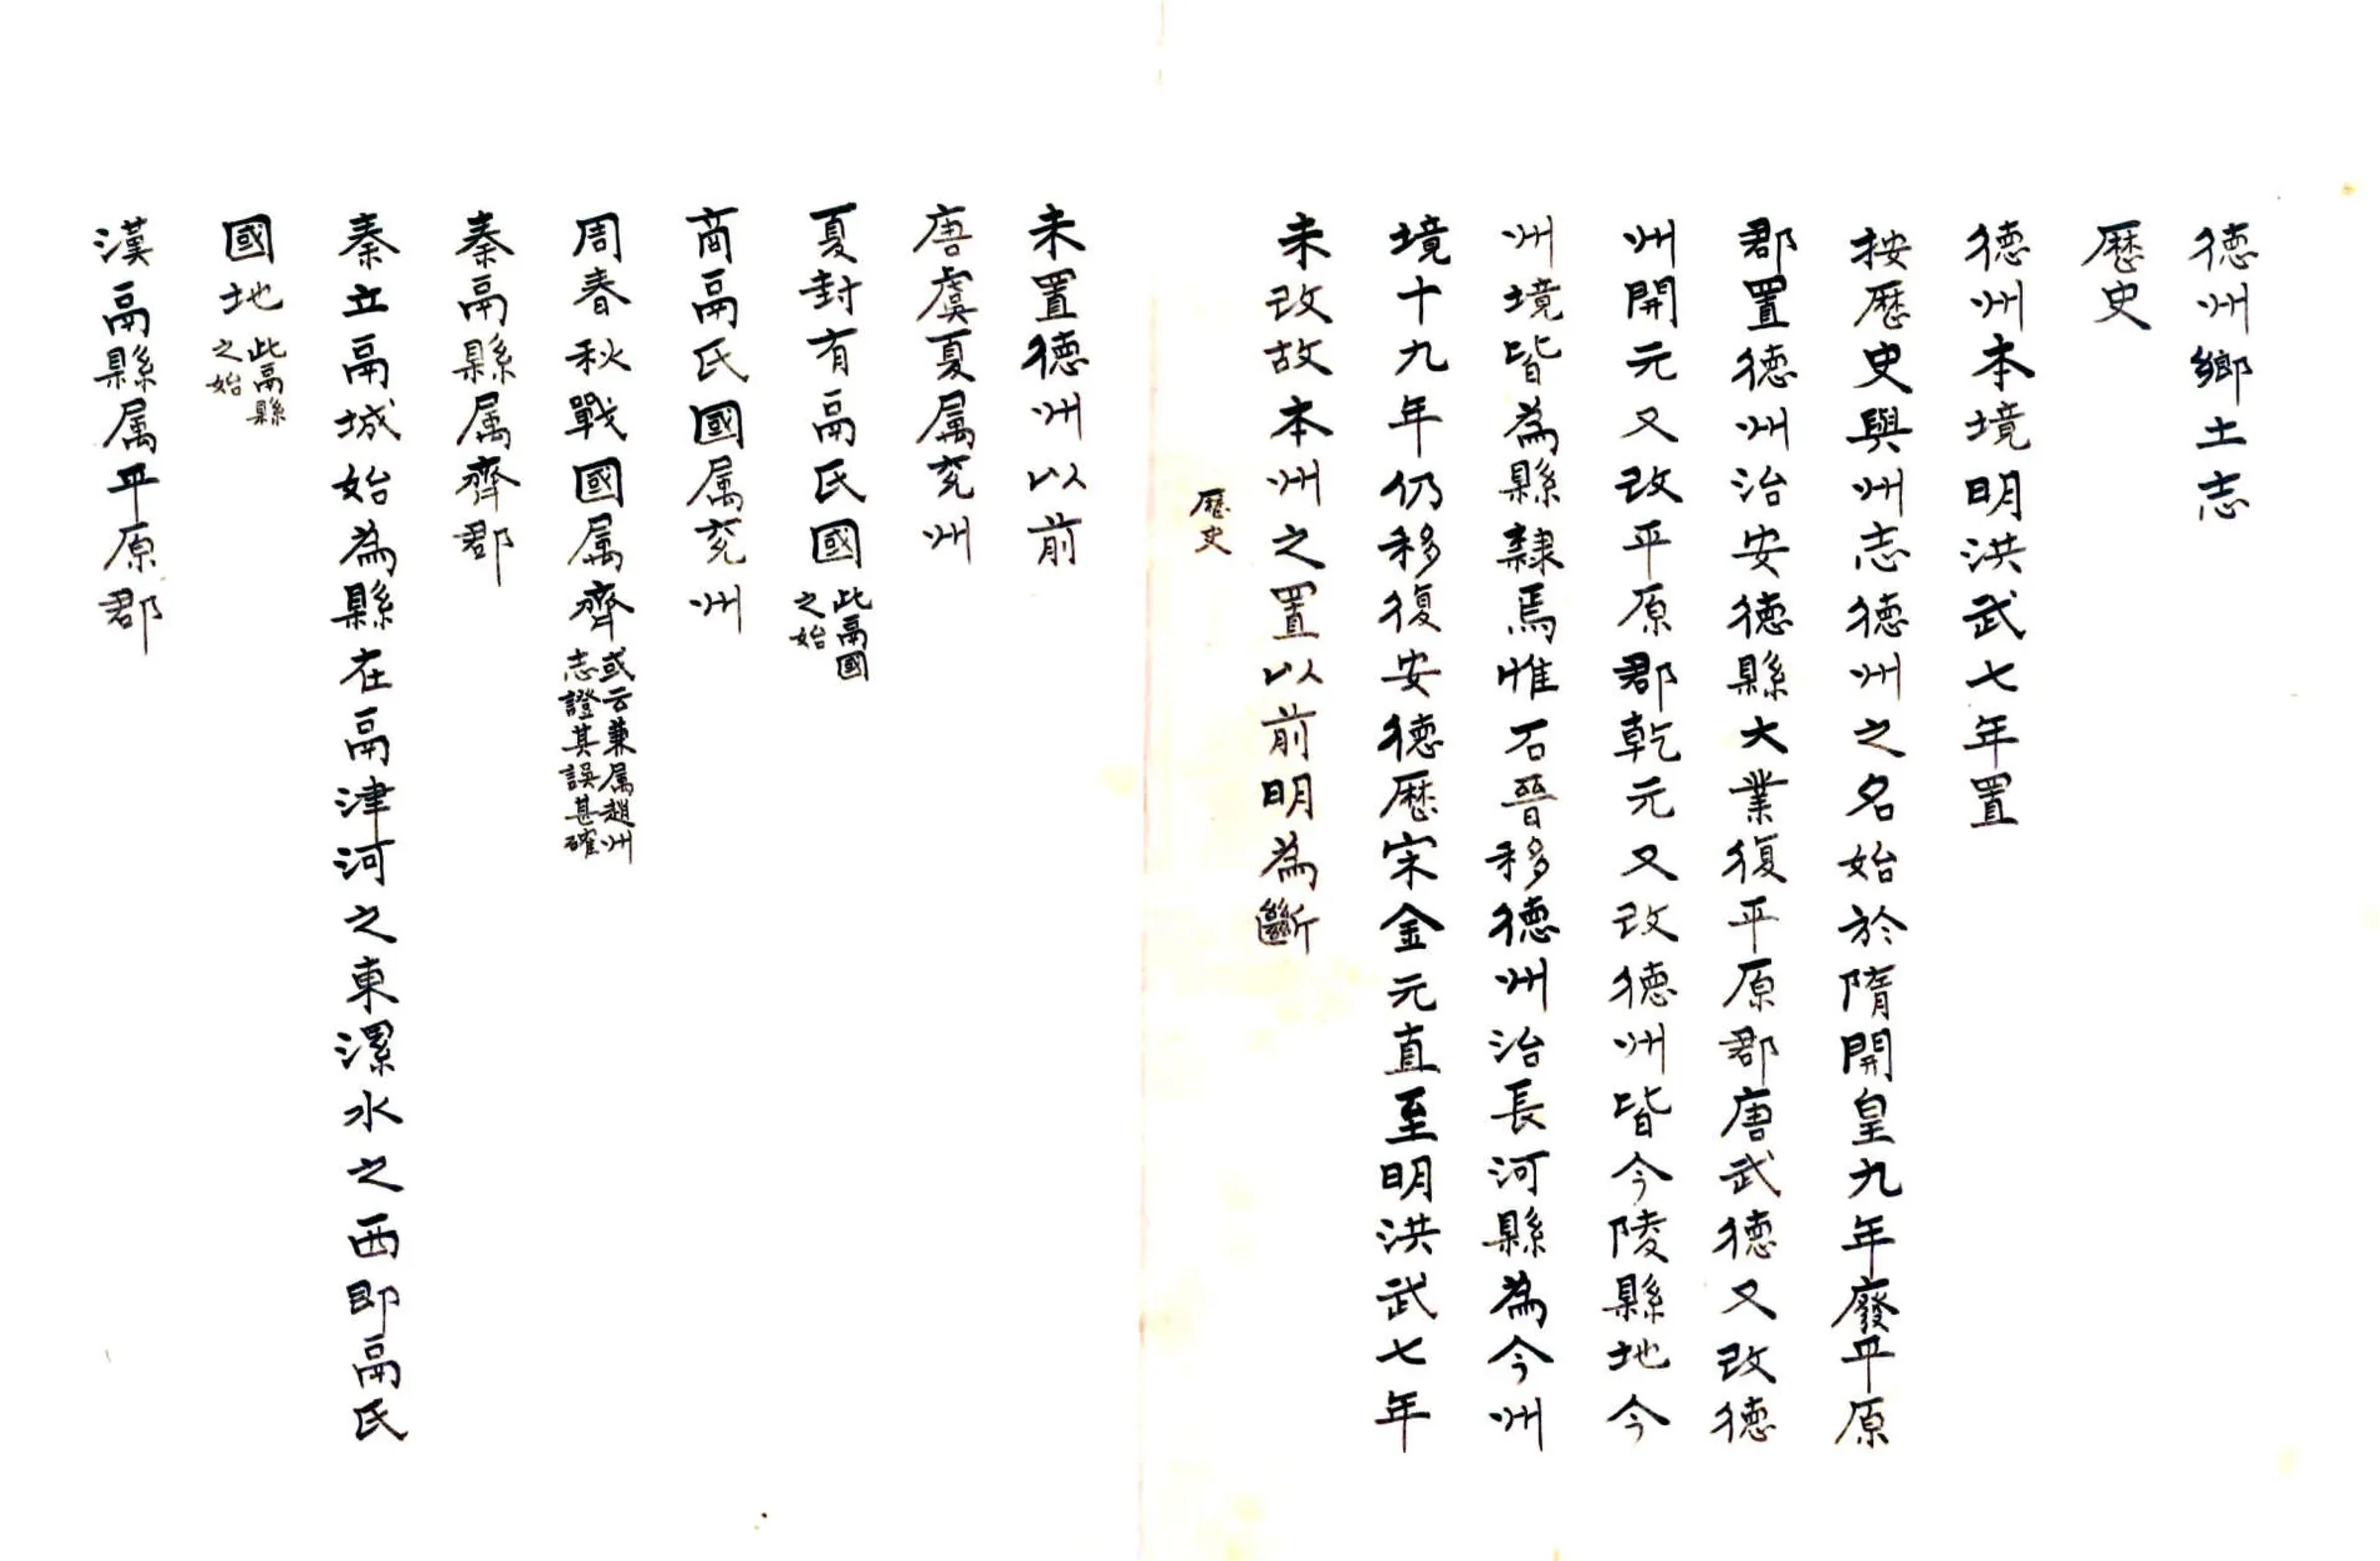 德州鄉土志
歷史
德州本境明洪武七年置
按歷史與州志德州之名始於隋開皇九年廢平原
郡置德州治安德縣大業復平原郡唐武德又改德
州開元又改平原郡乾元又改德州皆今陵縣地今
州境皆為縣隸焉惟石晉移德州治長河縣為今州
境十九年仍移復安德歷宋金元直至明洪武七年
未改故本州之置以前明為斷
歷史
未置德州以前
唐虞夏属兖州
夏封有鬲氏國此鬲國
之始
商鬲氏國属兖州
周春秋戰國属齊或云兼属趙州
志證其誤甚確
秦鬲縣属齊郡
秦立鬲城始為縣在鬲津河之東漯水之西即鬲氏
國地此鬲縣
之始
漢鬲縣属平原郡